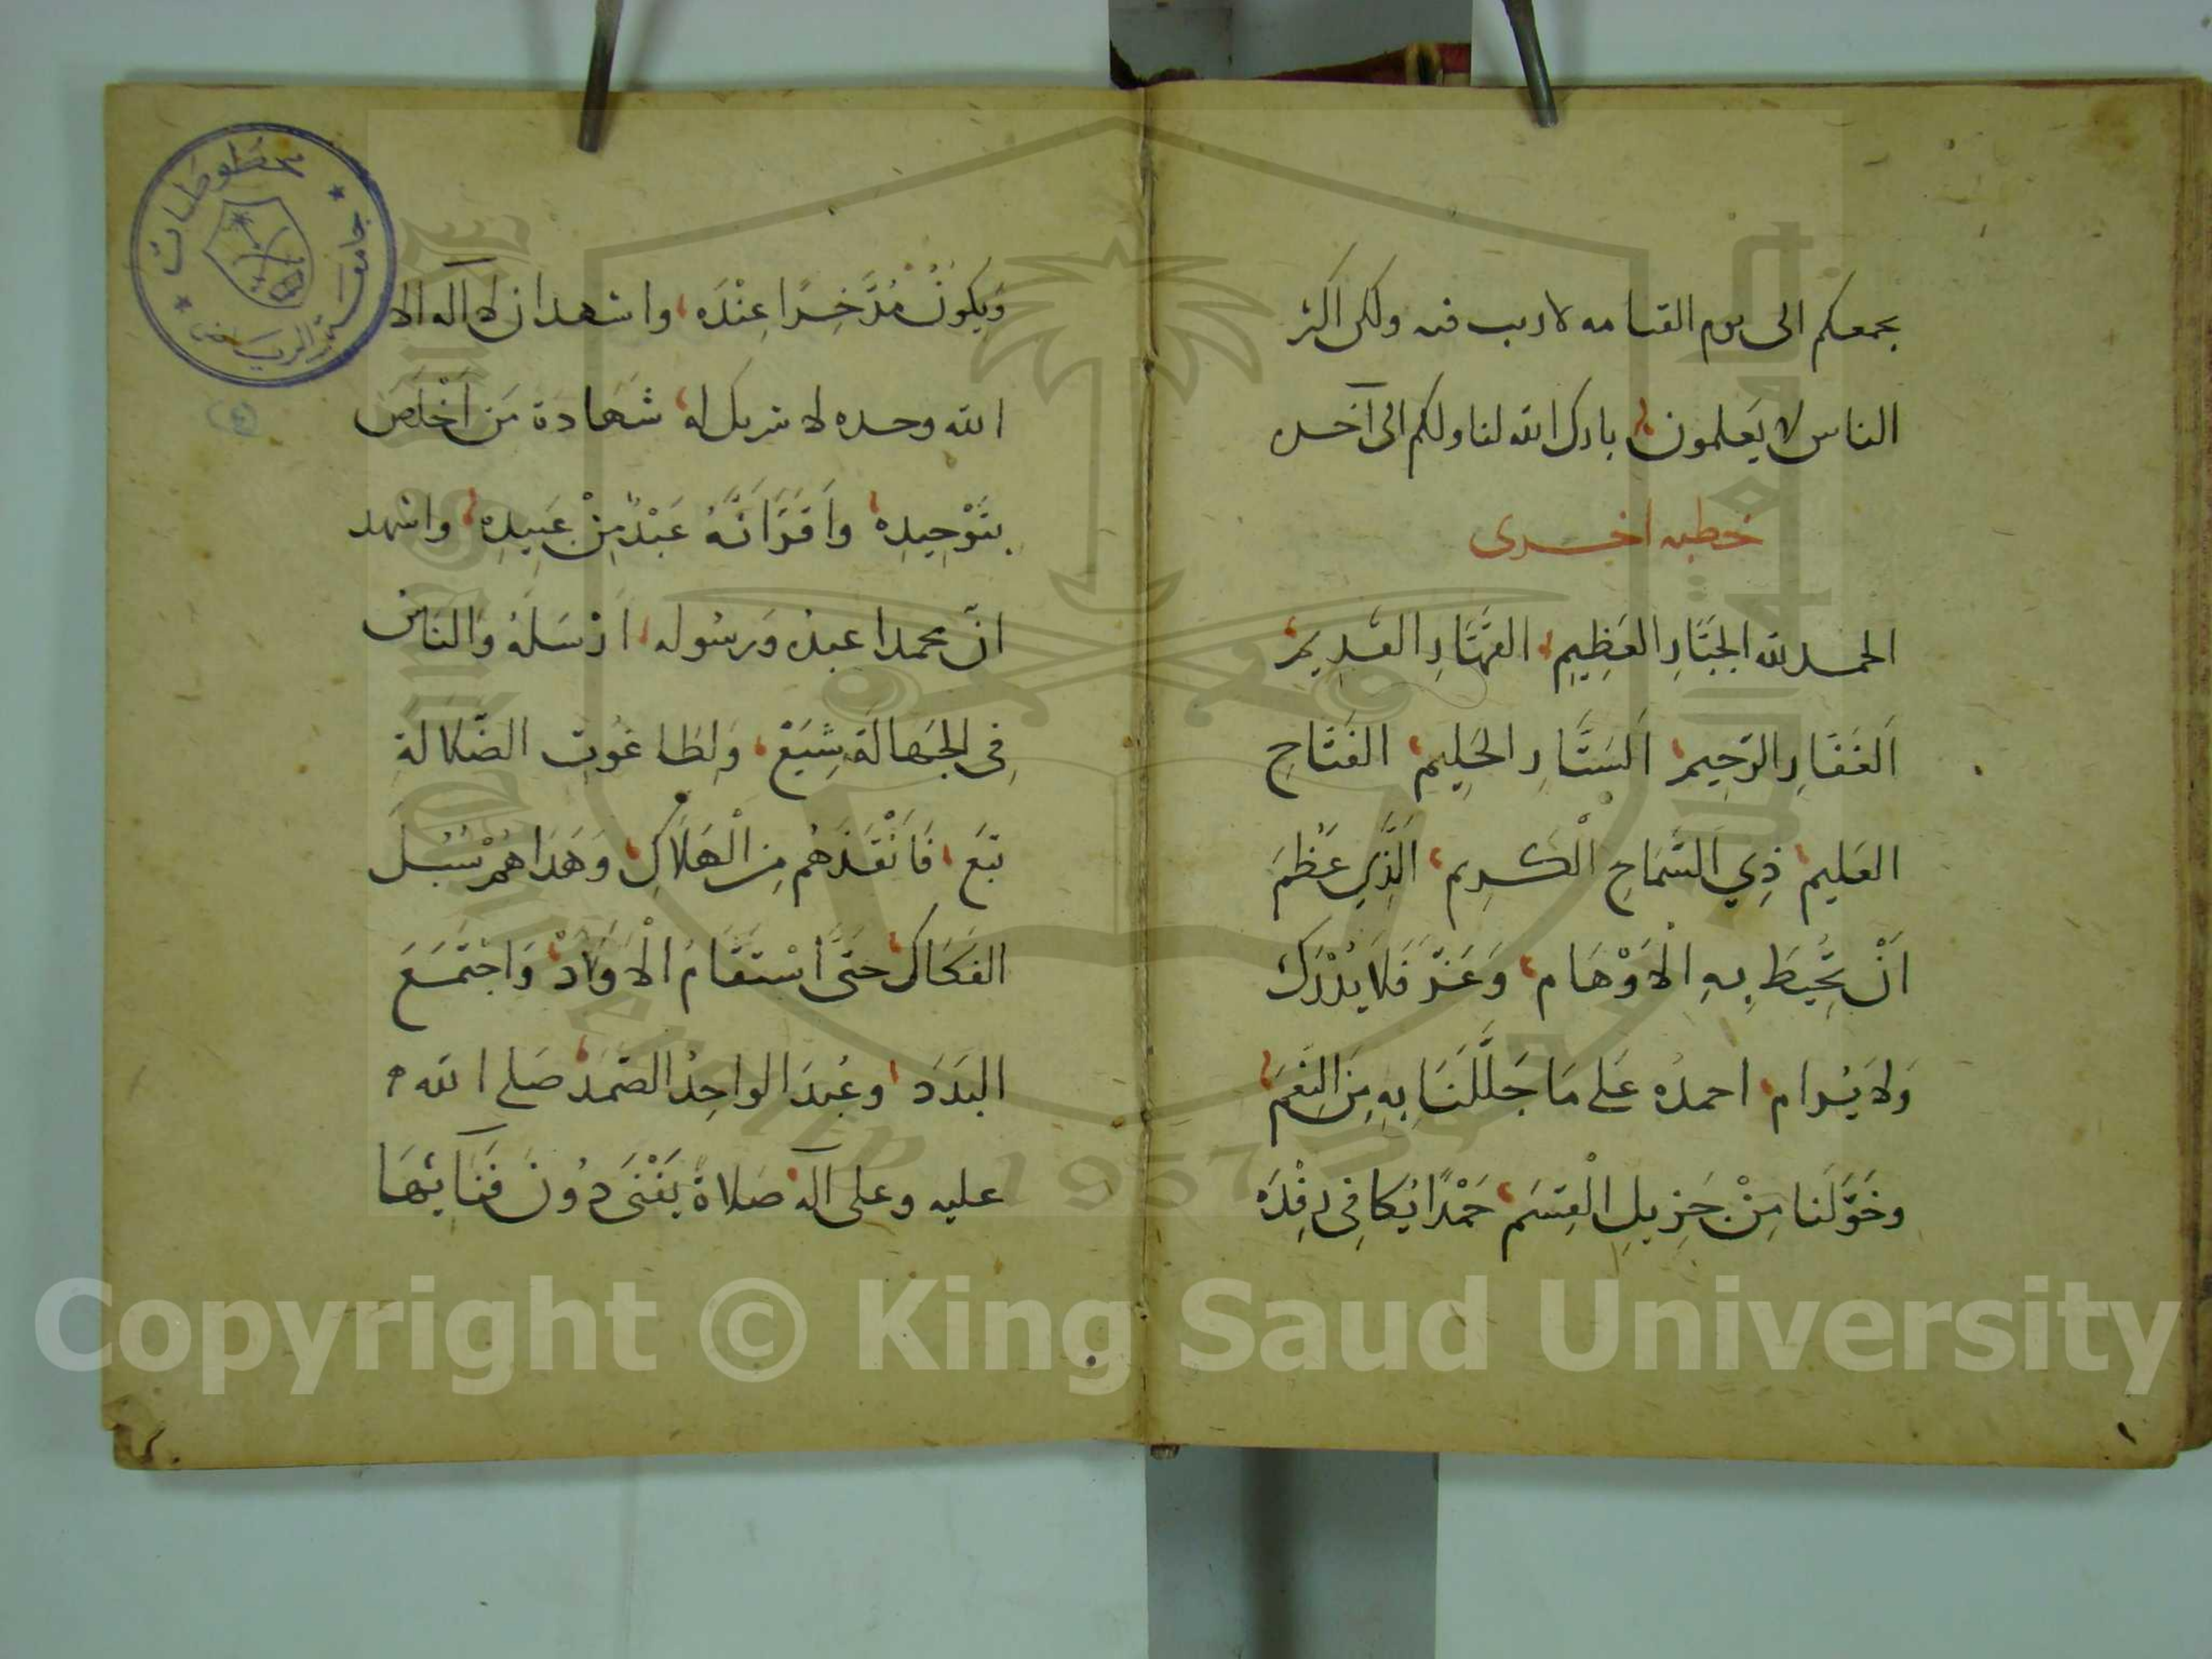 يجمعكم الى يوم القيامه لا ريب فيه ولكن اكثر
الناس لا يَعلمون بارك الله لنا ولكم الى آخره
خطبه اخرى
الحمد لله الجَبَّارِ العَظِيمِ القَهَّارِ القَدِيمِ
اَلغَفَّارِ الرَّحِيمِ اَلسَتَّارِ الحَلِيمِ الفَتَّاحِ
العَلِيمِ ذِي السَّمَاحِ الْكَرِيمِ الَّذِي عَظُمَ
اَنْ تُحِيطَ بِهِ الْاَوْهَام وَعَزَّ فَلَا يُدْرَك
وَلَا يُرام احمدُه عَلى مَا جَلَّلَنَا بِهِ مِنَ النِعَم
وخَوَّلَنا مِنْ جَزِيلِ الْقِسَم حَمْدًا يُكافِى رِفْدَه
وَيكونُ مُدَّخِرًا عِنْدَه واشهد ان لا اله الا
الله وحده لا شريك له شَهَادة مَن اَخْلَصَ
بتَوْحِيدِه واَقَرَّ اَنَّهُ عَبْدٌ مِنْ عَبِيدِه واشهد
انّ محمدا عبدُه وَرسُوله اَرْسَلَهُ وَالنَاسُ
فِى الجَهَالَة شِيَعْ وَلِطَاغُوتِ الضَّلالَةِ
تبَع فَاَنْقَذَهُم مِنَ الْهَلَاكِ وَهَدَاهُمْ سُبُلَ
الفَكَاك حَتَّى اسْتَقَامَ الْاَوَدْ وَاجْتَمَعَ
البَدَدَ وعُبِدَ الواحِدُ الصَّمَدْ صَلى الله
عليه وعلى آله صَلاةً يَفْنَى دُونَ فَنَائِهَا
مخطوطات
جامعة الرياض
King Saud University
1957
Copyright © King Saud University